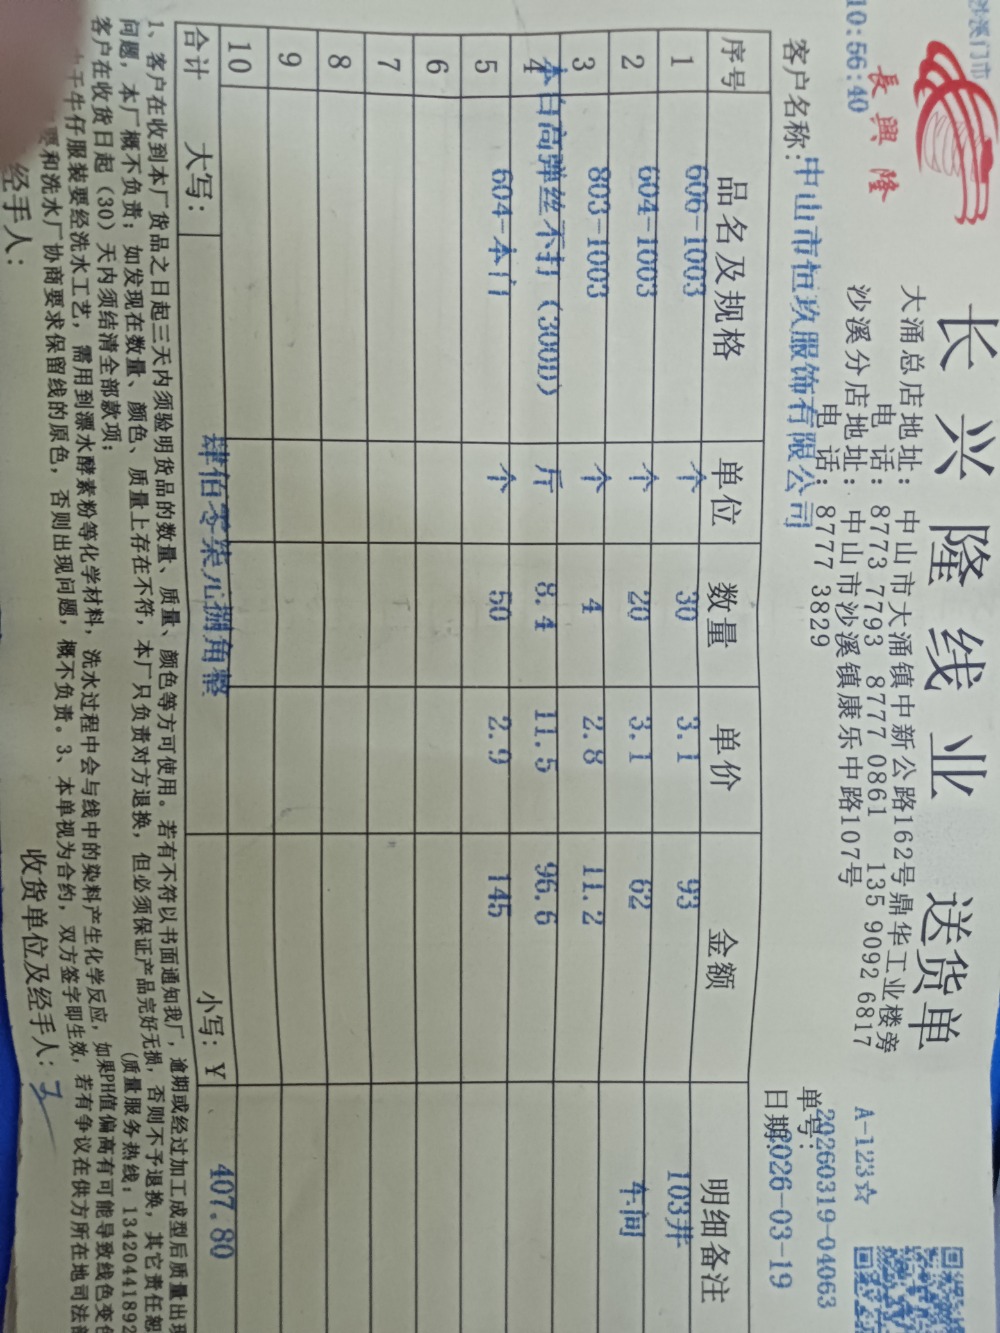 沙溪门市
10:56:40
長興隆
长兴隆线业 送货单
大涌总店地址：中山市大涌镇中新公路162号鼎华工业楼旁
电 话：8773 7793 8777 0861 135 9092 6817
沙溪分店地址：中山市沙溪镇康乐中路107号
电 话：8777 3829
A-123☆
单号：20260319-04063
客户名称：中山市恒玖服饰有限公司
日期：2026-03-19
序号 品名及规格 单位 数量 单价 金额 明细备注
1 606-1003 个 30 3.1 93 103井
2 604-1003 个 20 3.1 62 车间
3 803-1003 个 4 2.8 11.2
4 本白高弹丝不打（300D） 斤 8.4 11.5 96.6
5 604-本门 个 50 2.9 145
6
7
8
9
10
合计 大写： 肆佰零柒元捌角整 小写：￥ 407.80
1、客户在收到本厂货品之日起三天内须验明货品的数量、质量、颜色等方可使用。若有不符以书面通知我厂，逾期或经过加工成型后质量出现
问题，本厂概不负责；如发现在数量、颜色、质量上存在不符，本厂只负责对方退换，但必须保证产品完好无损，否则不予退换，其它责任恕
客户在收货日起（30）天内须结清全部款项； （质量服务热线：1342044189
于牛仔服装要经洗水工艺，需用到漂水酵素粉等化学材料，洗水过程中会与线中的染料产生化学反应，如果PH值偏高有可能导致线色变
和洗水厂协商要求保留线的原色，否则出现问题，概不负责。3、本单视为合约，双方签字即生效，若有争议在供方所在地司法
经手人： 收货单位及经手人：